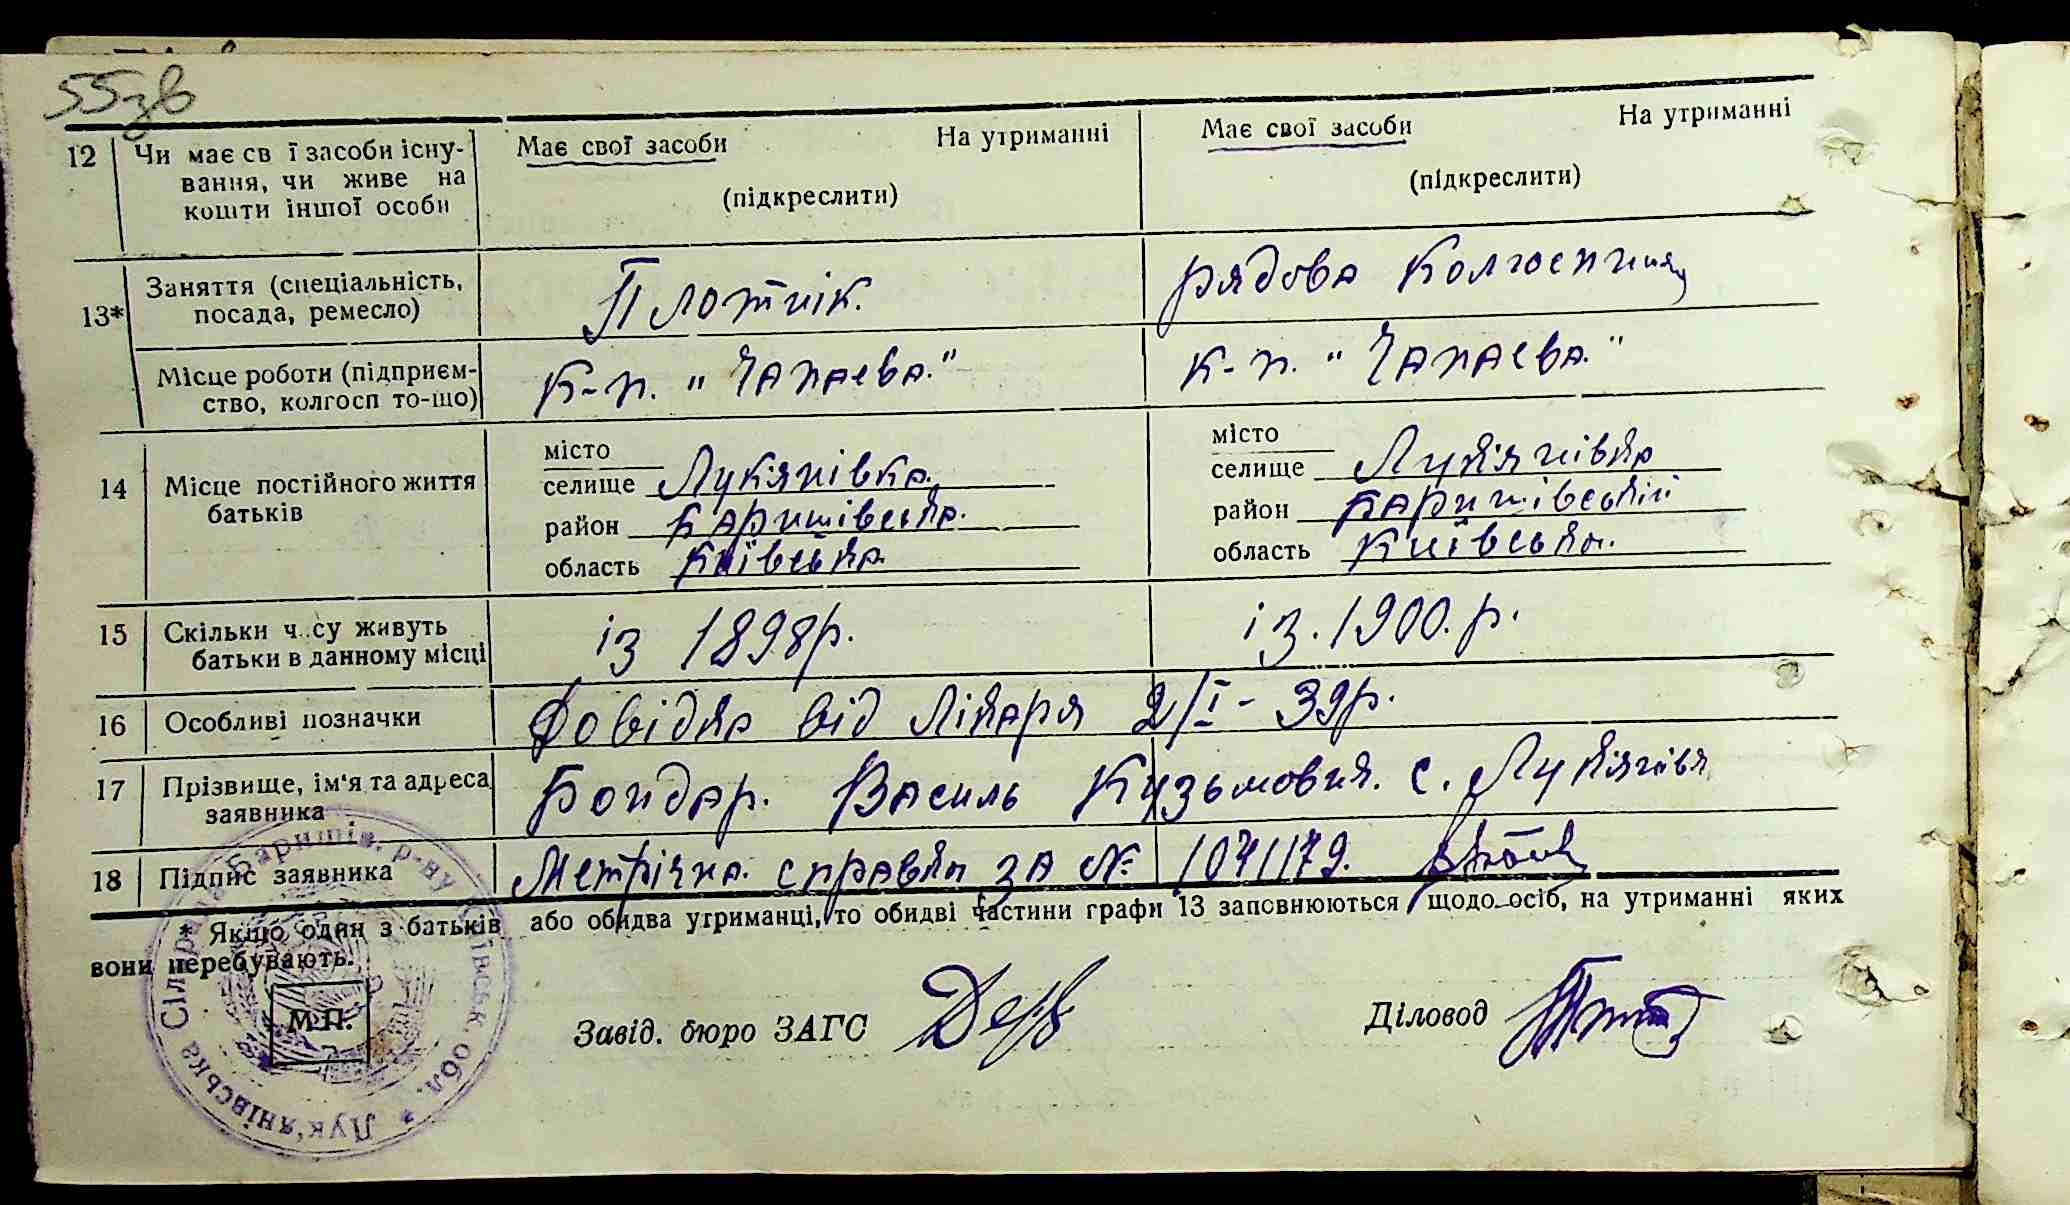 55зв
12 Чи має св ї засоби існу- Має свої засоби На утриманні Має свої засоби На утриманні
вання, чи живе на (підкреслити) (підкреслити)
кошти іншої особи
13* Заняття (спеціальність, Плотнік. рядова колгоспниця
посада, ремесло)
Місце роботи (підприєм- К-п. "Чапаєва." К-п. "Чапаєва."
ство, колгосп то-що)
14 Місце постійного життя батьків
місто місто
селище Лукянівка. селище Лукянівка
район Баришівська. район Баришівський
область Київська. область Київська.
15 Скільки ч су живуть із 1898р. із. 1900. р.
батьки в данному місці
16 Особливі позначки Довідка від лікаря 2/I - 39р.
17 Прізвище, ім'я та адреса Бондар. Василь Кузьмович. с. Лукянівка
заявника
18 Підпис заявника Метрічна. справка за № 1041179.
* Якщо один з батьків або обидва утриманці, то обидві частини графи 13 заповнюються щодо осіб, на утриманні яких
вони перебувають.
М.П.
Завід. бюро ЗАГС Діловод
Лук'янівська Сільрада Баришів. р-ну Київськ. обл. *